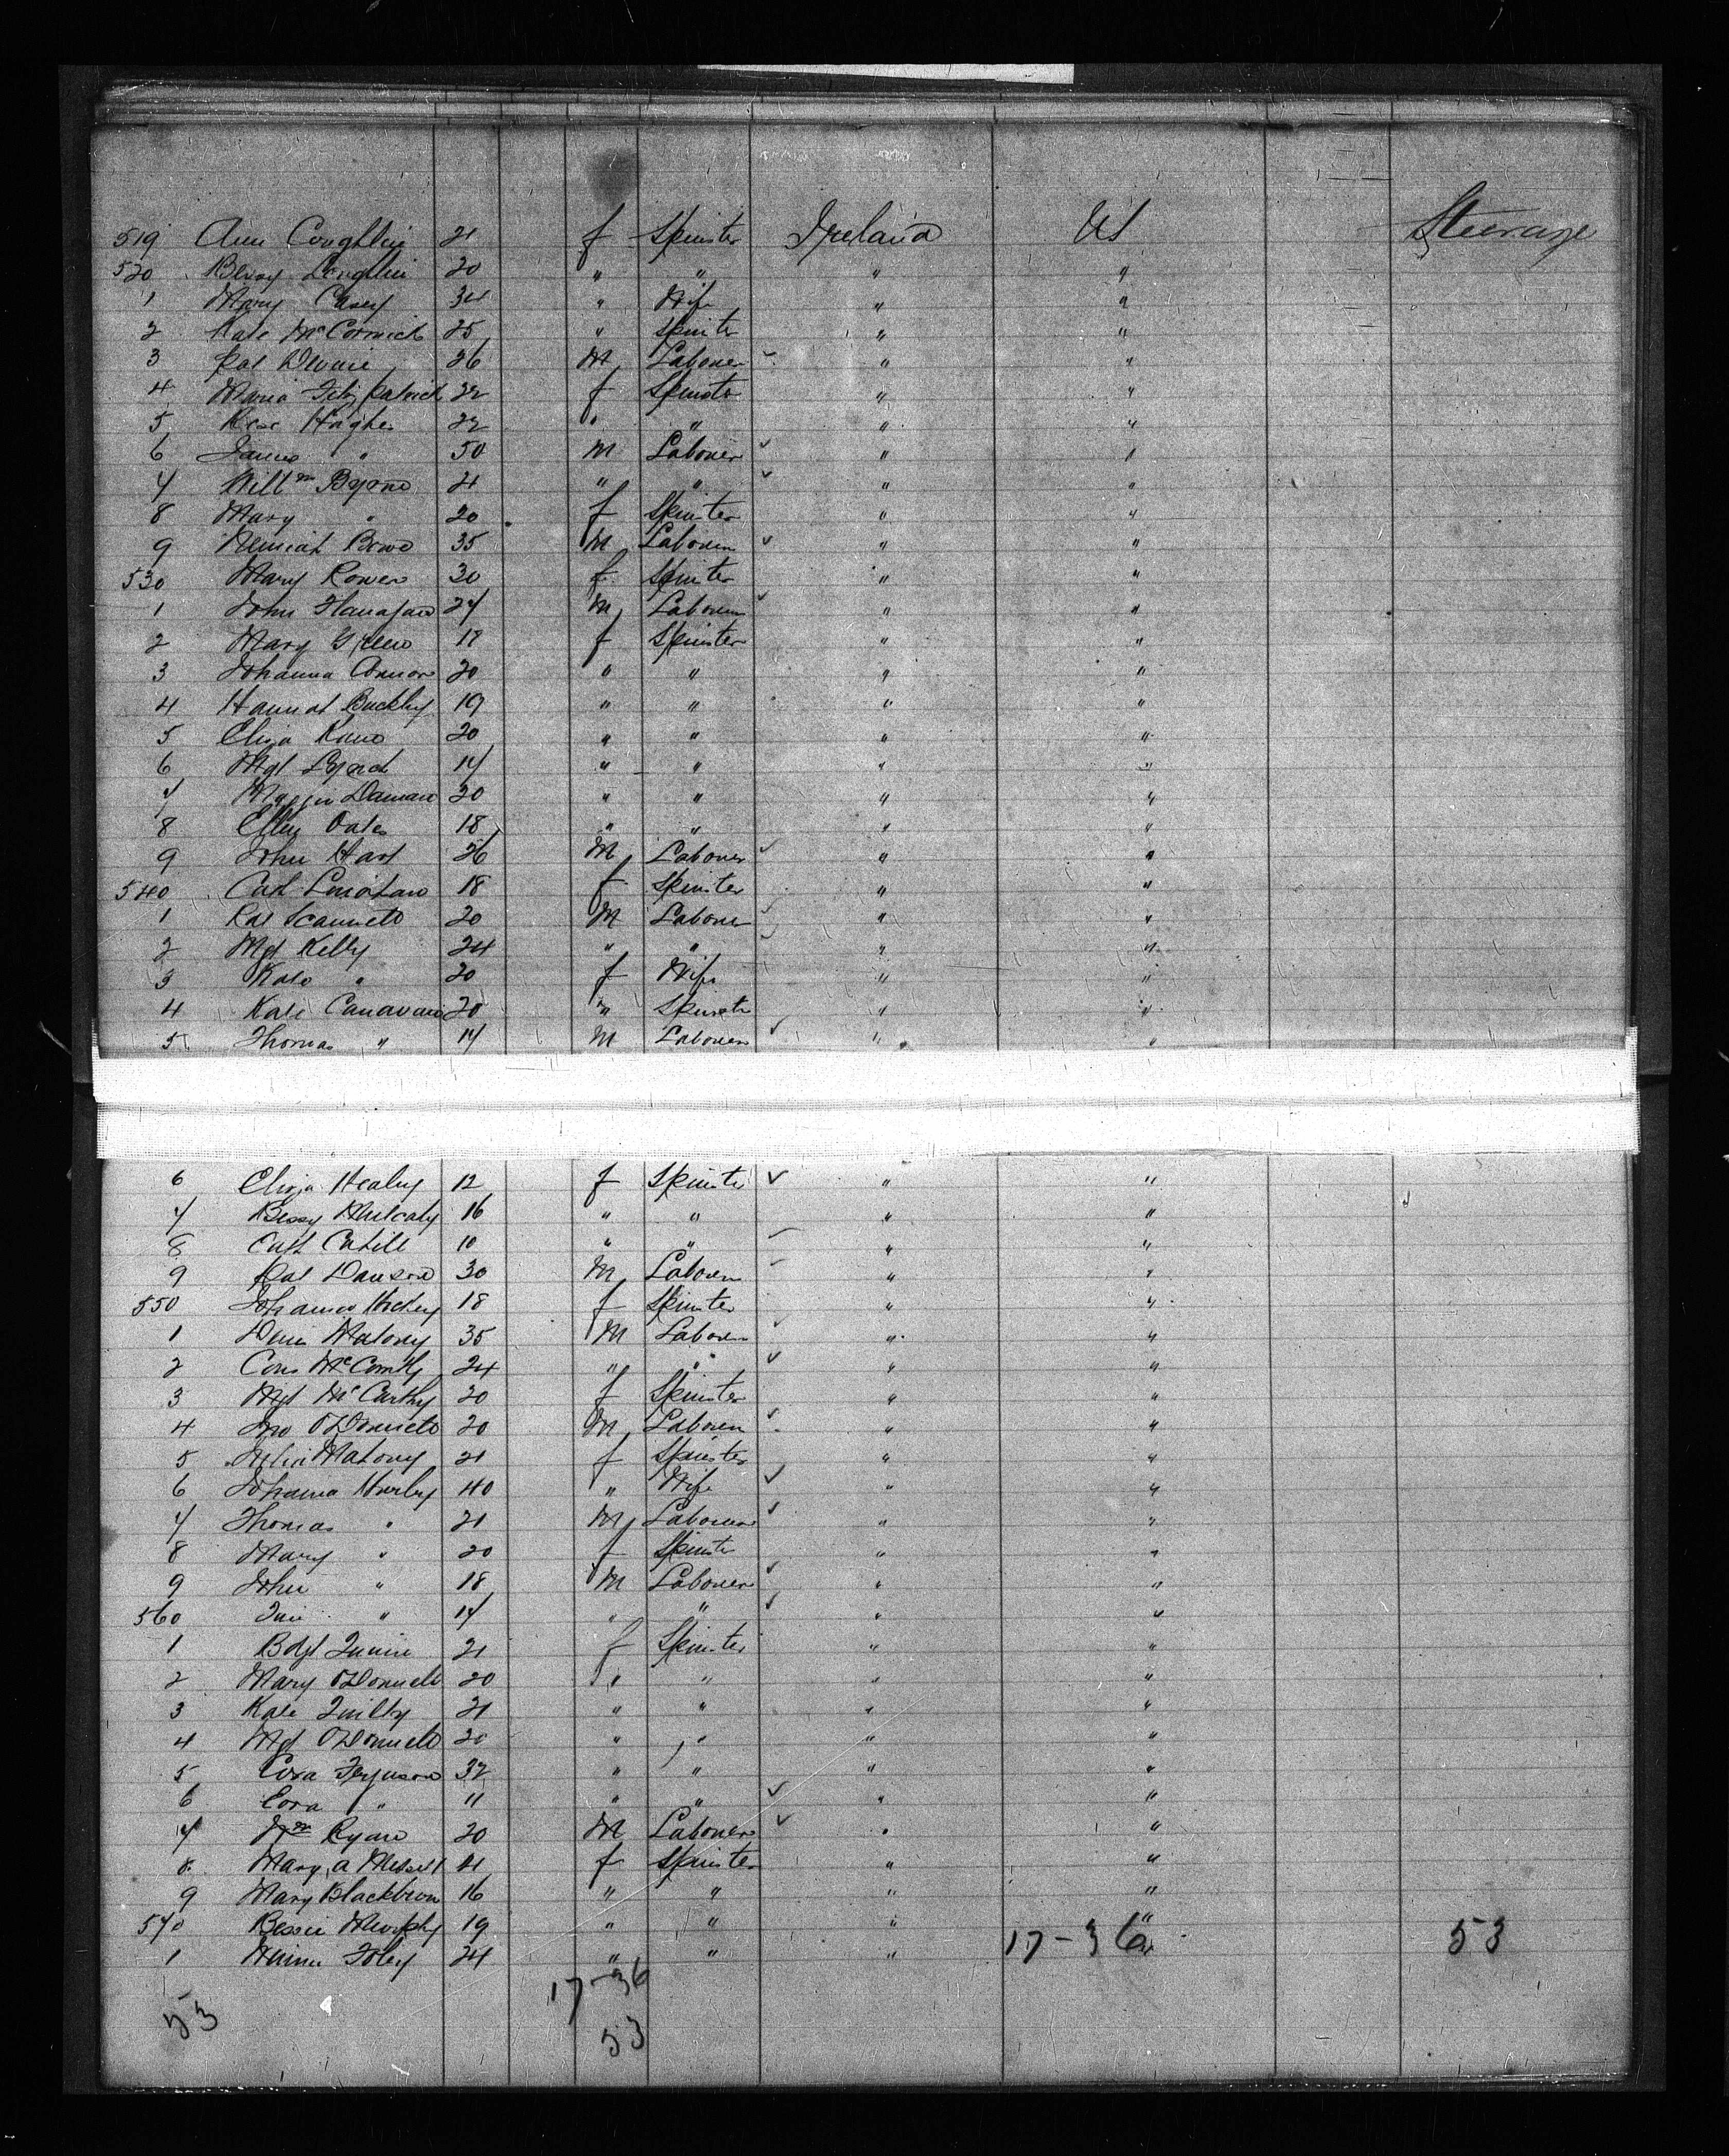 519 Ann Coughlin 21 f Spinster Ireland US Steerage
520 Coughlin 20 " " " "
1 Mary Casey 34 " Wife " "
2 Kate McCormick 25 " Spinster " "
3 Pat 26 M Laborer " "
4 Maria Fitzpatrick 22 f Spinster " "
5 Rose Hughes 22 " " " "
6 James " 50 M Laborer " "
7 Willm Byrne 21 " " " "
8 Mary " 20 f Spinster " "
9 35 M Laborer " "
530 Mary Power 30 f Spinster " "
1 John Flanagan 27 M Laborer " "
2 Mary Green 17 f Spinster " "
3 Johanna Connor 20 " " " "
4 Hannah Buckley 19 " " " "
5 Eliza Kane 20 " " " "
6 Mgt Lynch 17 " " " "
7 Maggie 20 " " " "
8 Ellen Oates 18 " " " "
9 John Hart 26 M Laborer " "
540 Cath 18 f Spinster " "
1 Pat Scannell 20 M Laborer " "
2 Mgt Kelly 24 " " " "
3 Kate " 20 f Wife " "
4 Kate Canavan 20 " Spinster " "
5 Thomas " 17 M Laborer " "
6 Eliza Healey 12 f Spinster " "
7 Bessy Mulcahy 16 " " " "
8 Cath Cahill 10 " " " "
9 Pat Dawson 30 M Laborer " "
550 Johanna 18 f Spinster " "
1 Denis Mahony 35 M Laborer " "
2 Corn 24 " " " "
3 Mgt McCarthy 20 f Spinster " "
4 Jno O'Donnell 20 M Laborer " "
5 Julia Mahony 21 f Spinster " "
6 Johanna Hurley 40 " Wife " "
7 Thomas " 21 M Laborer " "
8 Mary " 20 f Spinster " "
9 John " 18 M Laborer " "
560 " 17 " " " "
1 Bdgt Quinn 21 f Spinster " "
2 Mary O'Donnell 20 " " " "
3 Kate Quilty 21 " " " "
4 Mgt O'Donnell 20 " " " "
5 Cora Ferguson 32 " " " "
6 Cora " 11 " " " "
7 Wm Ryan 20 M Laborer " "
8 Mary A 21 f Spinster " "
9 Mary Blackburn 16 " " " "
570 Bessie Murphy 19 " " " "
1 Foley 24 " " " " 17-36 53
17-36
53 53